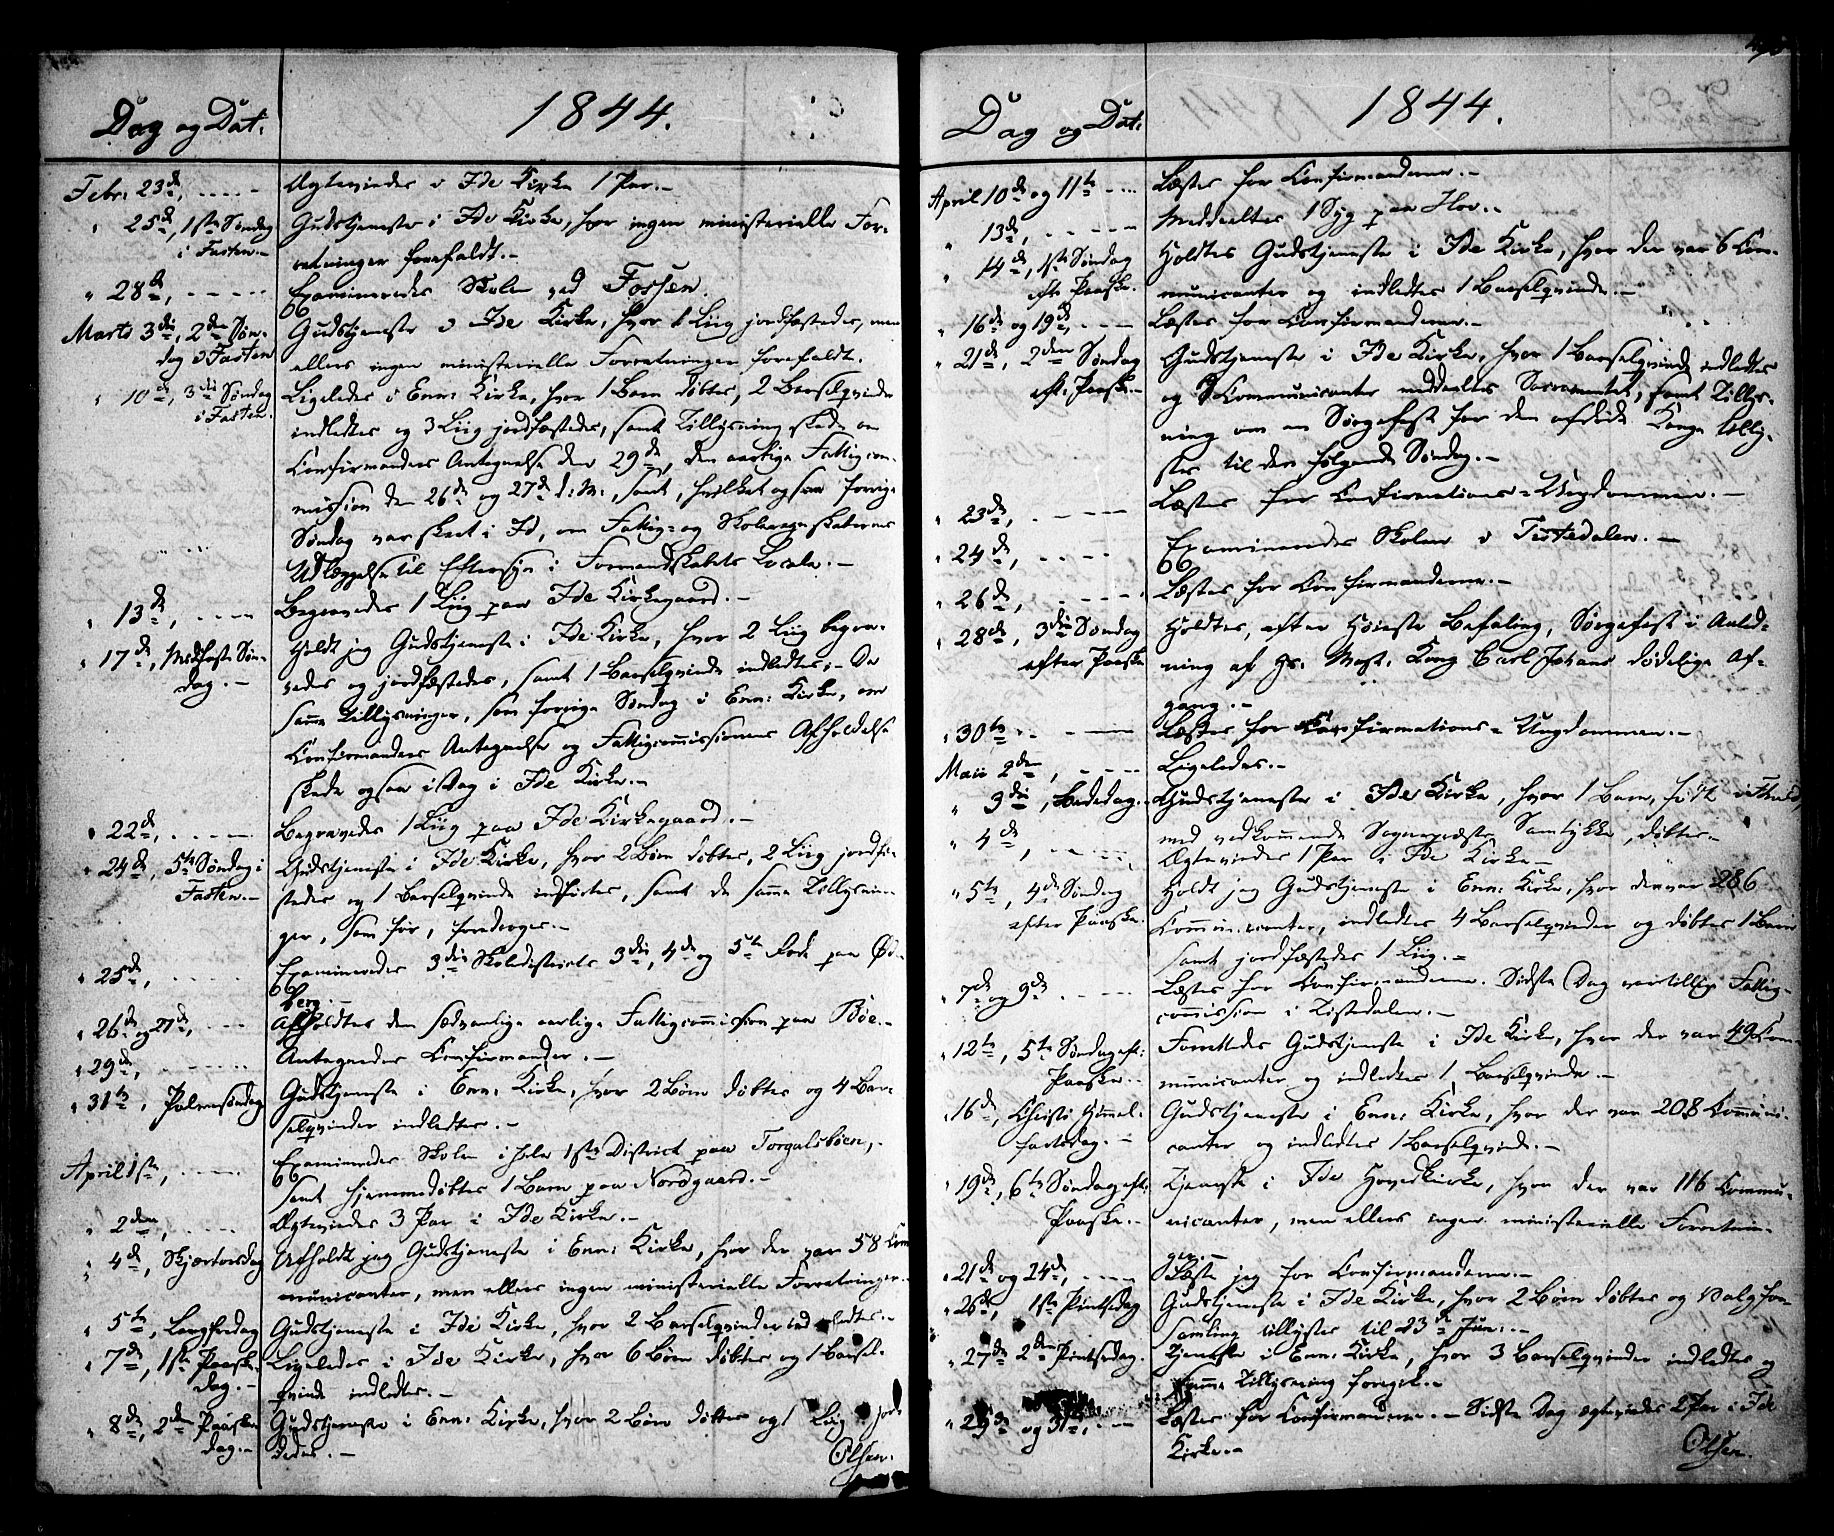 Dag og Dat: 1844.
Febr: 23de, - - - - Ægteviedes i Ide Kirke 1 Par. -
" 25de, 1ste Søndag Gudstjeneste i Ide Kirke, hvor ingen ministerielle For-
i Fasten. - retninger forefaldt. -
" 28de, - - - - - Examineredes Skolen ved Fossen.
Marts 3die, 2den Søn- Gudstjeneste i Ide Kirke, hvor 1 Liig jordfæstedes, men
dag i Fasten ellers ingen ministerielle Forretninger forefaldt.
" 10de, 3die Søndag Ligeledes i Enn: Kirke, hvor 1 Barn døbtes, 2 Barselqvinder
i Fasten. indledtes og 3 Liig jordfæstedes, samt Tillysning skede om
Confirmanders Antagelse den 29de, den aarlige Fattigcom-
mission den 26de og 27de d: M:, samt, hvilket ogsaa forrige
Søndag var skeet i Id, om Fattig- og Skoleregnskabernes
Udlæggelse til Eftersyn i Formandskabets Locale. -
" 13de, - - - - Begravedes 1 Liig paa Ide Kirkegaard. -
" 17de, Midfaste Søn- Holdt jeg Gudstjeneste i Ide Kirke, hvor 2 Liig begra-
dag. - vedes og jordfæstedes, samt 1 Barselqvinde indledtes. - De
samme Tillysninger, som forrige Søndag i Enn: Kirke, om
Confirmanders Antagelse og Fattigcommissionens Afholdelse
skede ogsaa i Dag i Ide Kirke. -
" 22de, - - - - Begravedes 1 Liig paa Ide Kirkegaard. -
" 24de, 5te Søndag i Gudstjeneste i Ide Kirke, hvor 2 Børn døbtes, 2 Liig jordfæ-
Fasten. - stedes og 1 Barselqvinde indførtes, samt de samme Tillysnin-
ger, som før, foredroges. -
" 25de, - - - - Examineredes 3die Skoledistricts 3die, 4de og 5te Rode paa Ød-
berg. -
" 26de og 27de, - - - Afholdtes den sædvanlige aarlige Fattigcommission paa Bøe. -
" 29de, - - - - - Antagedes Confirmander. -
" 31te, Palmesøndag Gudstjeneste i Enn: Kirke, hvor 2 Børn døbtes og 4 Bar-
selqvinder indledtes. -
April 1ste, - - - - Examineredes Skolen i hele 1ste District paa Torgalsbøen, -
samt hjemmedøbtes 1 Barn paa Nordgaard. -
" 2den, - - - - Ægteviedes 3 Par i Ide Kirke. -
" 4de, Skjærtorsdag Afholdt jeg Gudstjeneste i Enn: Kirke, hvor der var 58 Com-
municanter, men ellers ingen ministerielle Forretninger. -
" 5te, Langfredag Gudstjeneste i Ide Kirke, hvor 2 Barselqvinder indledtes. -
" 7de, 1ste Paaske- Ligeledes i Ide Kirke, hvor 6 Børn døbtes og 1 Barsel-
dag. - qvinde indledtes. -
" 8de, 2den Paaske- Gudstjeneste i Enn: Kirke, hvor 2 Børn døbtes og 1 Liig jord-
dag. -
Olsen.
Dag og Dat: 1844.
April 10de og 11te - - - Læstes for Confirmanderne. -
" 13de, - - - - - Meddeeltes 1 Syg paa Hov. -
" 14de, 1ste Søndag Holdtes Gudstjeneste i Ide Kirke, hvor der var 6 Com-
eft: Paaske. municanter og indledtes 1 Barselqvinde. -
" 16de og 19de, - - - Læstes for Confirmanderne. -
" 21de, 2den Søndag Gudstjeneste i Ide Kirke, hvor 1 Barselqvinde indledtes
eft: Paaske. - og Communicanter meddeeltes Sacramentet, samt Tillys-
ning om en Sørgefest for den afdøde Konge tilly-
stes til den følgende Søndag. -
" 23de, - - - - - Læstes for Confirmations-Ungdommen. -
" 24de, - - - - Examineredes Skolen i Tistedalen. -
" 26de, - - - - - Læstes for Confirmanderne. -
" 28de, 3die Søndag Holdtes, efter Høieste Befaling, Sørgefest i Anled-
efter Paaske ning af Hs: Majst: Kong Carl Johans dødelige Af-
gang. -
" 30te - - - - - Læstes for Confirmations-Ungdommen. -
Maii 2den, - - - - Ligeledes. -
" 3die, Bededag. Gudstjeneste i Ide Kirke, hvor 1 Barn, født i
med vedkommende Sognepræsts Samtykke, døbtes. -
" 4de, - - - - - Ægteviedes 1 Par i Ide Kirke. -
" 5te, 4de Søndag Holdt jeg Gudstjeneste i Enn: Kirke, hvor der var 286
efter Paaske. Communicanter, indledtes 4 Barselqvinder og døbtes 1 Barn
samt jordfæstedes 1 Liig. -
" 7de og 9de - - - - Læstes for Confirmanderne. Sidste Dag var tillige Fattig-
commission i Tistedalen. -
" 12te, 5te Søndag eft: Forrettedes Gudstjeneste i Ide Kirke, hvor der var 49 Com-
Paaske. - municanter og indledtes 1 Barselqvinde. -
" 16de, Christi Himmel- Gudstjeneste i Enn: Kirke, hvor der var 208 Communi-
fartsdag. - canter og indledtes 1 Barselqvinde. -
" 19de, 6te Søndag eft: Tjeneste i Ide Hovedkirke, hvor der var 116 Commu-
Paaske. - nicanter, men ellers ingen ministerielle Forretnin-
ger. -
" 21de og 24de, - - - - Læste jeg for Confirmanderne. -
" 26de, 1ste Pintsedag Gudstjeneste i Ide Kirke, hvor 2 Børn døbtes og Valgfor-
samling tillystes til 23de Juni. -
" 27de 2den Pintsedag. Tjeneste i Enn: Kirke, hvor 3 Barselqvinder indledtes og
samme Tillysning foregik. -
" 29de og 31te, - - - Læstes for Confirmanderne. - Sidste Dag ægteviedes 2 Par i Ide
Kirke. -
Olsen.